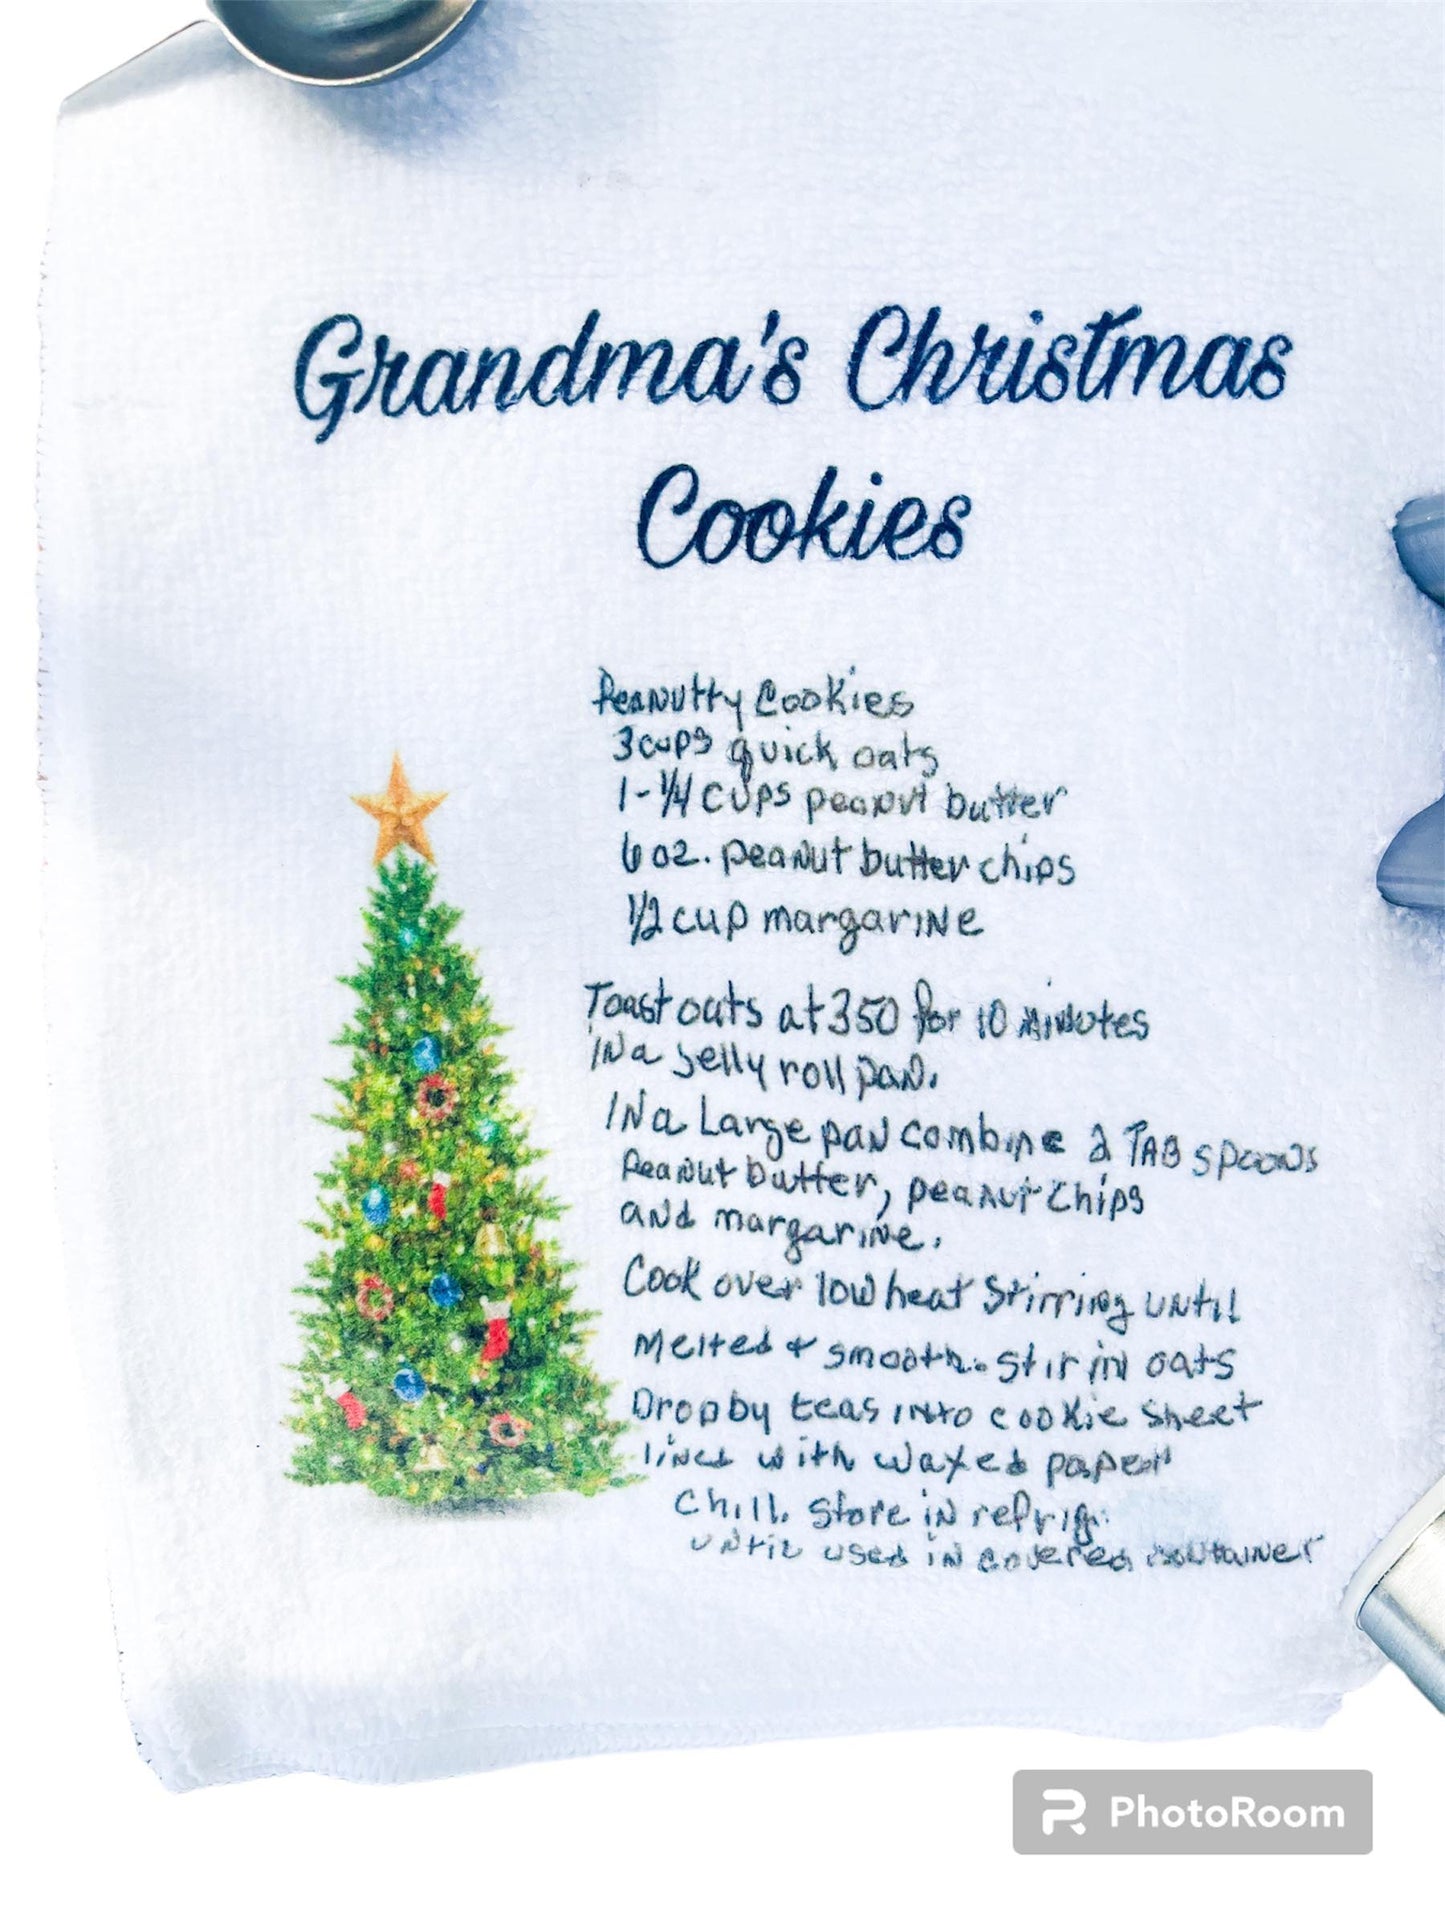 Grandma's Christmas
Cookies
Peanutty Cookies
3 cups quick oats
1-1/4 cups peanut butter
6 oz. peanut butter chips
1/2 cup margarine
Toast oats at 350 for 10 minutes
in a jelly roll pan.
In a Large pan combine 2 TAB spoons
Peanut butter, peanut chips
and margarine.
Cook over low heat stirring until
melted & smooth. stir in oats
Drop by teas into cookie sheet
lined with waxed paper
Chill. Store in refrig.
until used in covered container
PhotoRoom